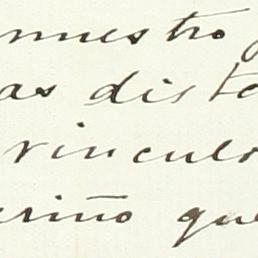 nuestro
as dist
vinculo
ariño que